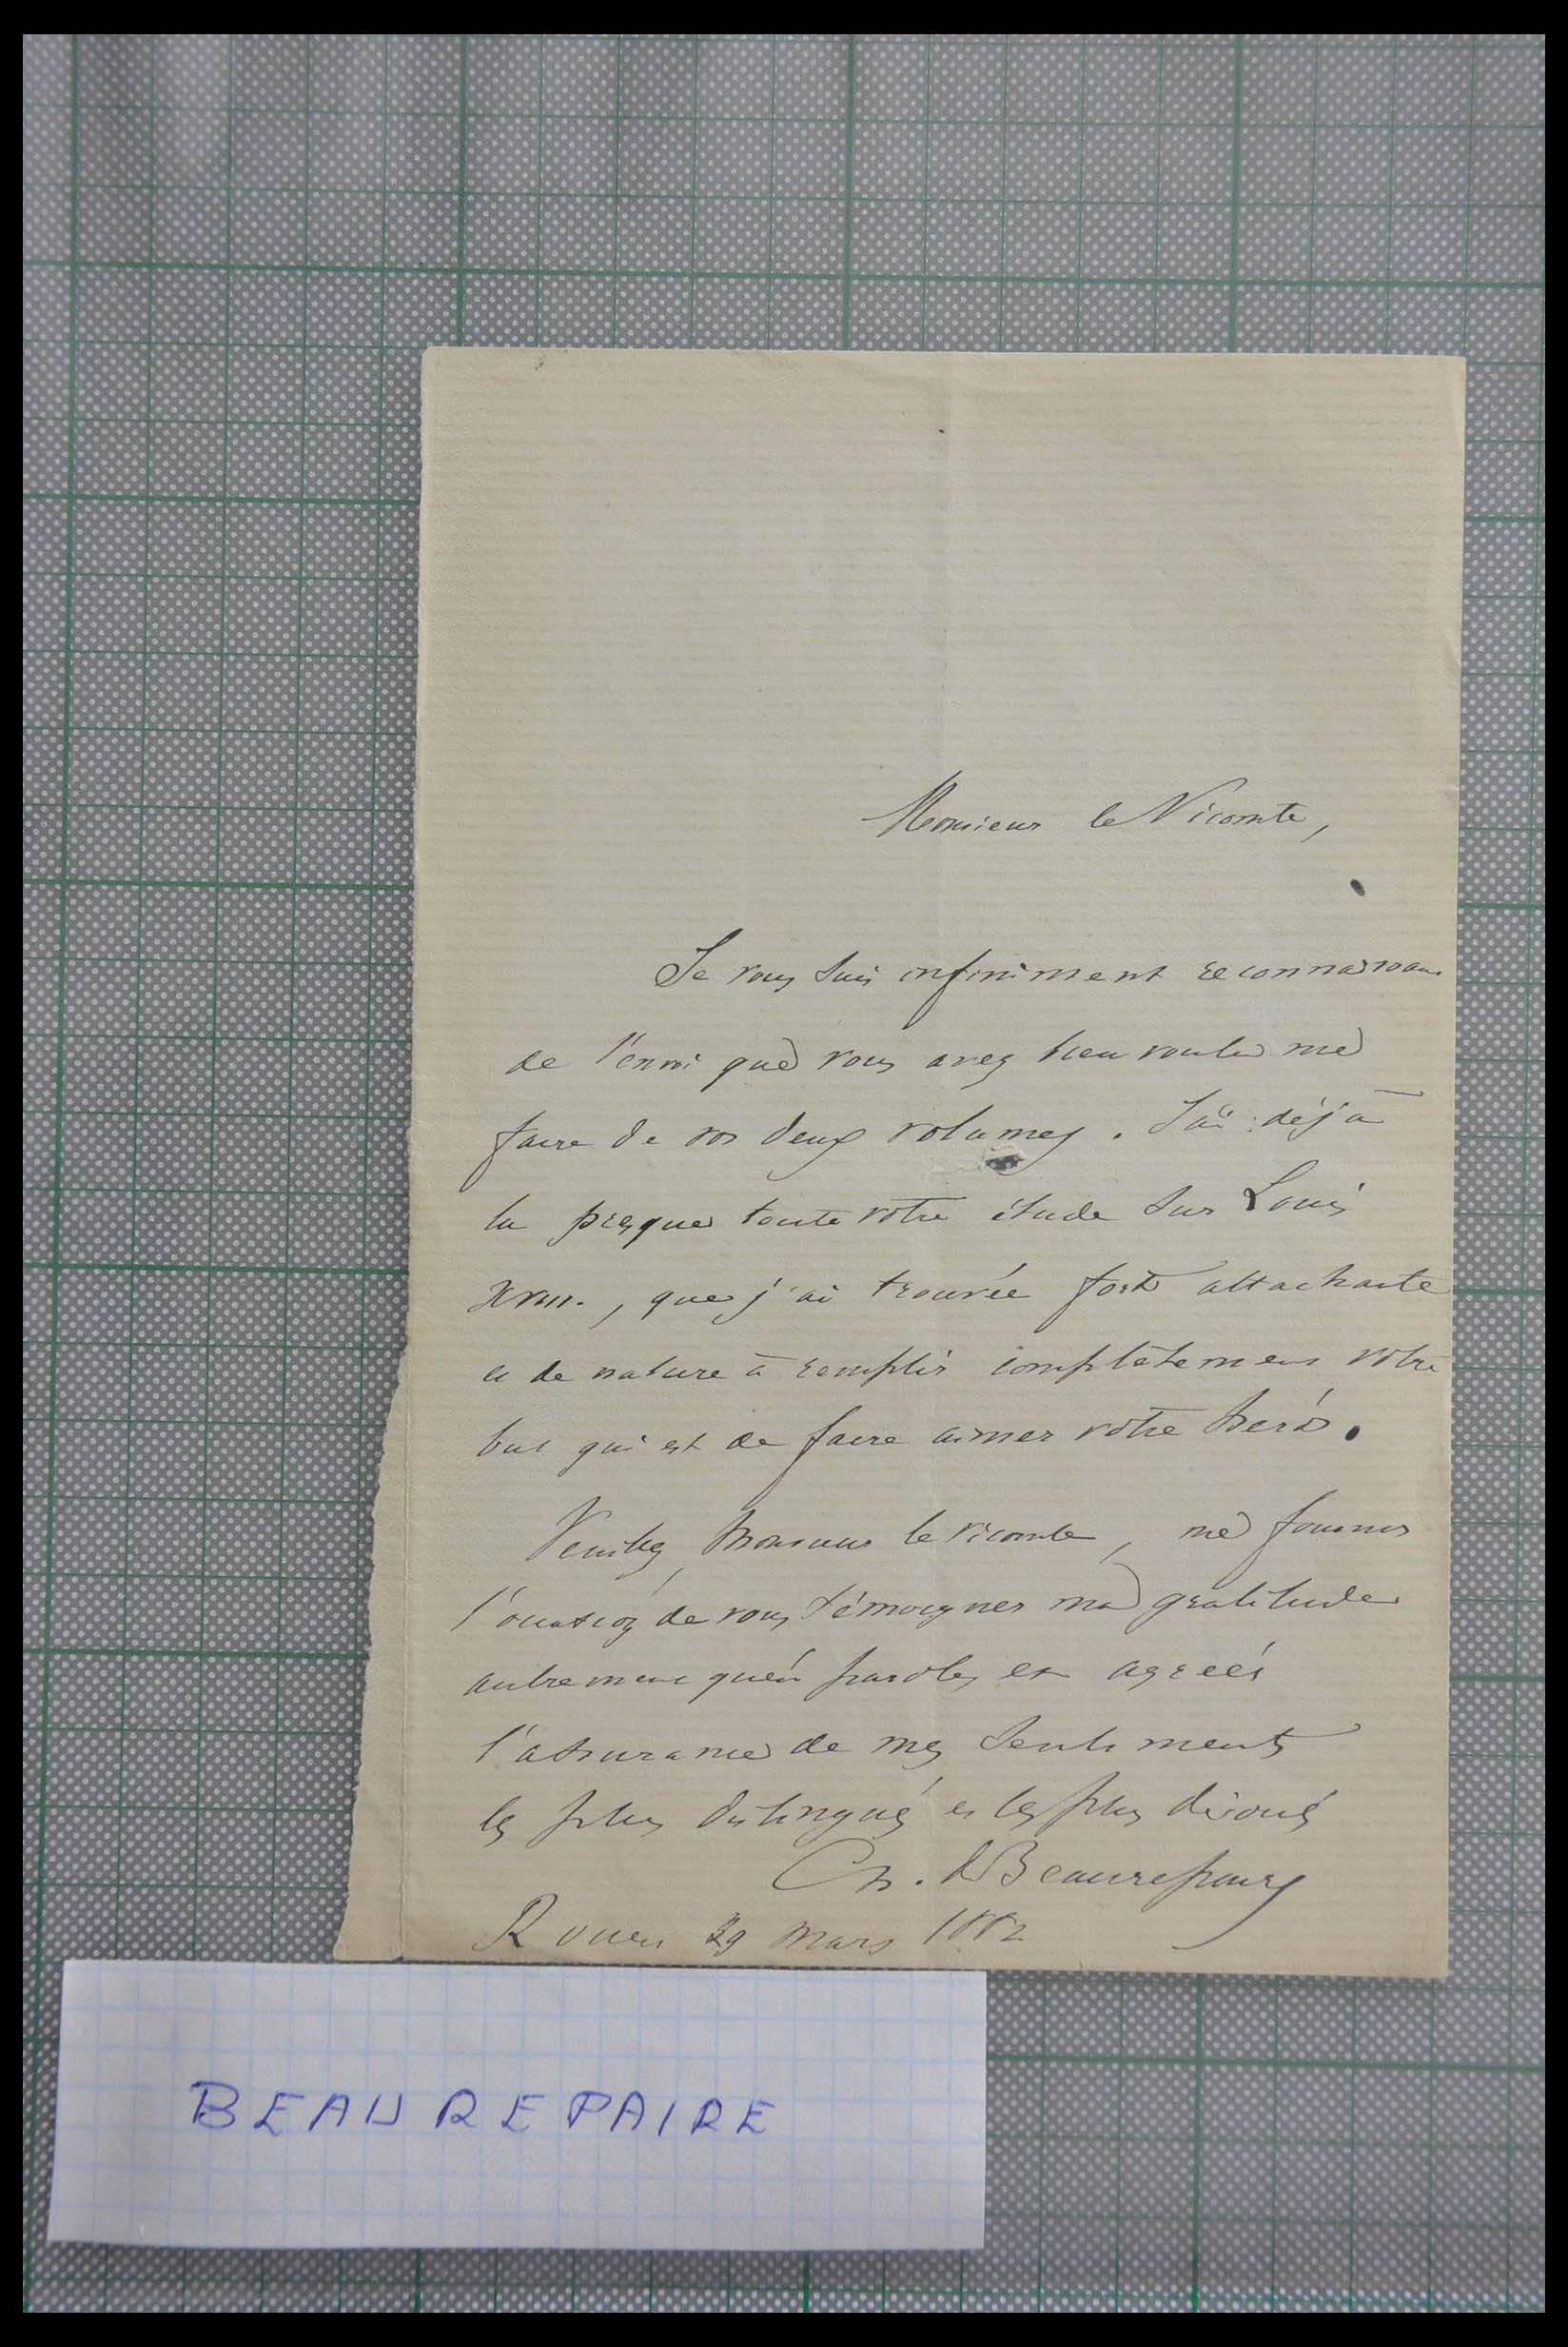 Monsieur le Vicomte,
Je vous suis infiniment reconnaissant
de l'envoi que vous avez bien voulu me
faire de vos deux volumes. J'ai déjà
lu presque toute votre étude sur Louis
XVIII., que j'ai trouvée fort attachante
et de nature à remplir complètement votre
but qui est de faire aimer votre héros.
Veuillez, Monsieur le Vicomte, me fournir
l'occasion de vous témoigner ma gratitude
autrement qu'en paroles et agréer
l'assurance de mes sentiments
les plus distingués et les plus dévoués
Ch. de Beaurepaire
Rouen 29 mars 1882
BEAUREPAIRE